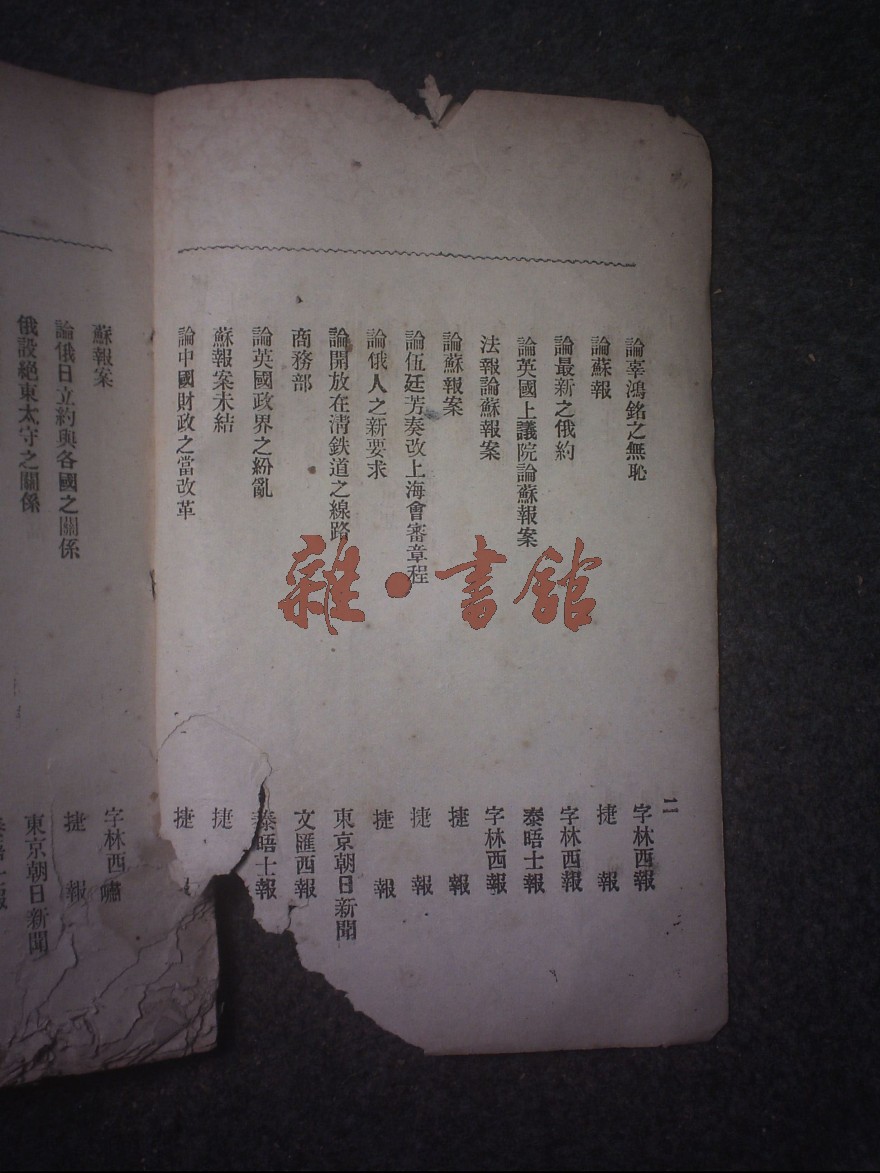 二
論辜鴻銘之無恥 字林西報
論蘇報 捷報
論最新之俄約 字林西報
論英國上議院論蘇報案 泰晤士報
法報論蘇報案 字林西報
論蘇報案 捷報
論伍廷芳奏改上海會審章程 捷報
論俄人之新要求 捷報
論開放在清鉄道之線路 東京朝日新聞
商務部 文匯西報
論英國政界之紛亂 泰晤士報
蘇報案未結 捷
論中國財政之當改革 捷
蘇報案 字林西
論俄日立約與各國之關係 捷報
俄設絕東太守之關係 東京朝日新聞
雜·書館